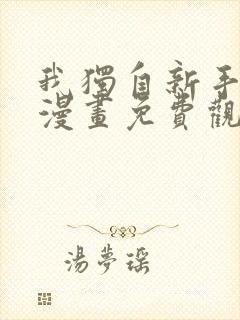 我獨自新手
漫畫免費觀
湯夢瑶